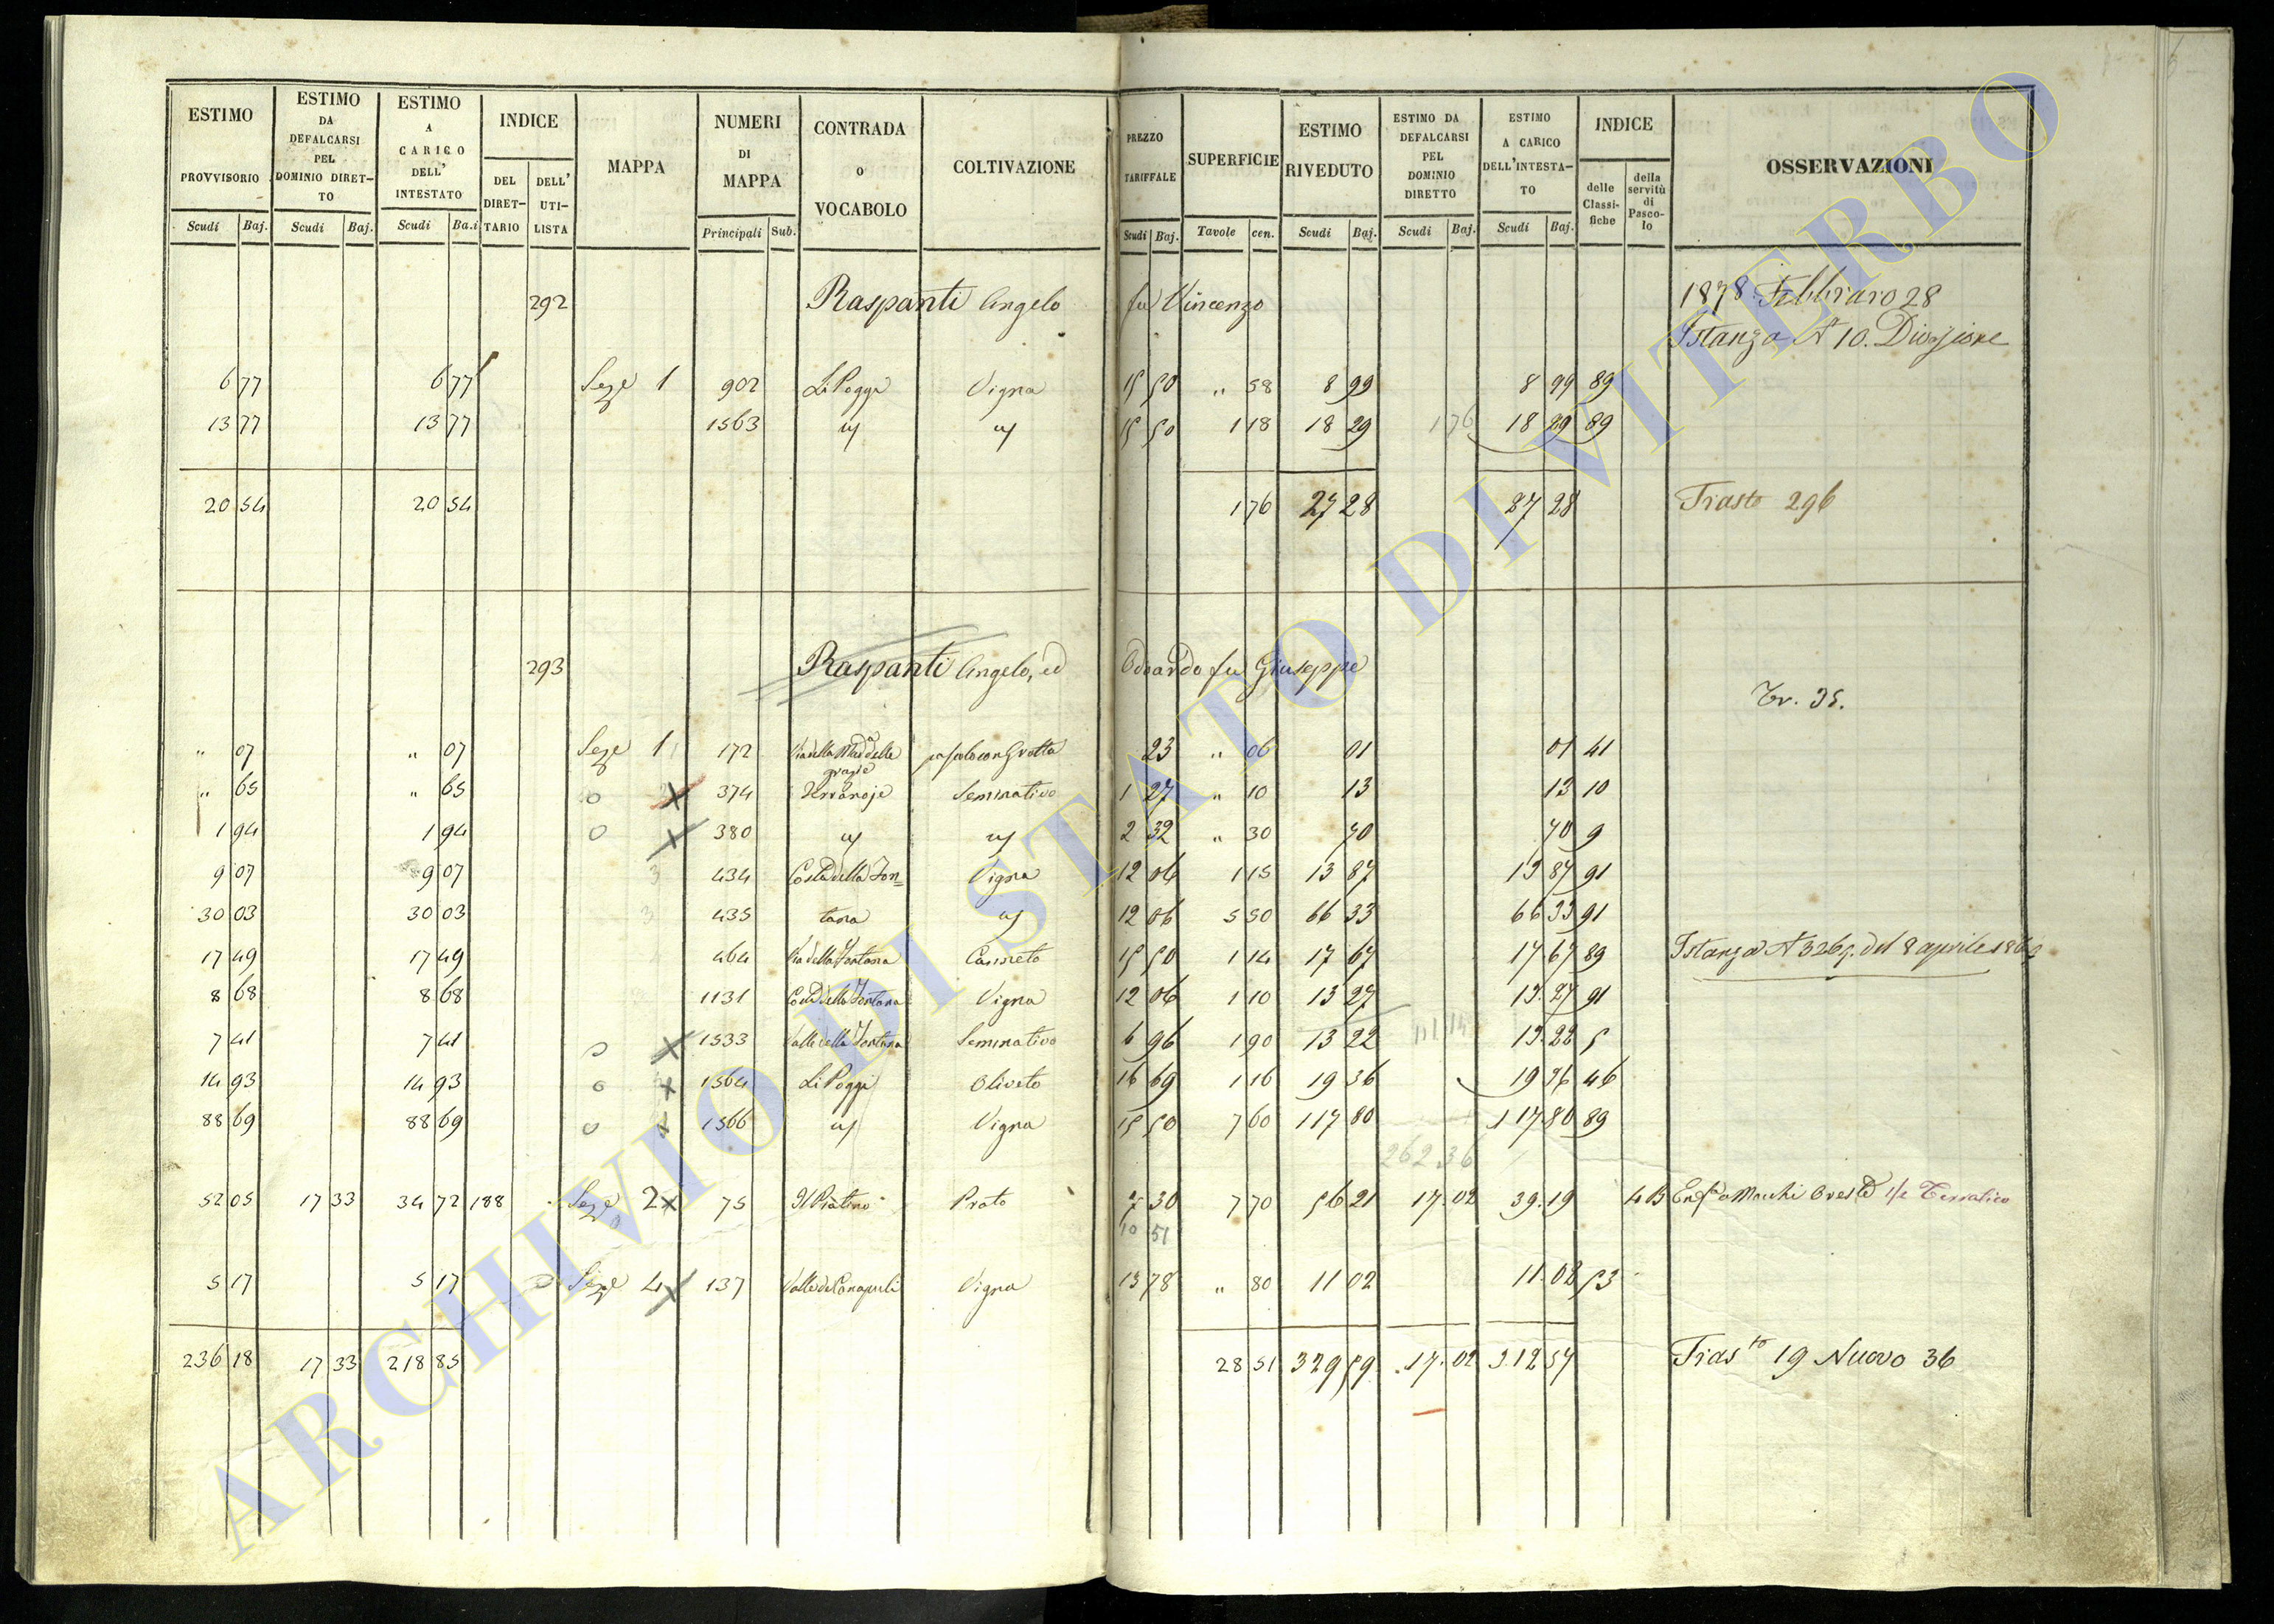 ESTIMO PROVVISORIO Scudi Baj.
ESTIMO DA DEFALCARSI PEL DOMINIO DIRET-TO Scudi Baj.
ESTIMO A CARICO DELL' INTESTATO Scudi Ba.i
INDICE DEL DIRET-TARIO DELL' UTI-LISTA
MAPPA
NUMERI DI MAPPA Principali Sub.
CONTRADA o VOCABOLO
COLTIVAZIONE
PREZZO TARIFFALE Scudi Baj.
SUPERFICIE Tavole cen.
ESTIMO RIVEDUTO Scudi Baj.
ESTIMO DA DEFALCARSI PEL DOMINIO DIRETTO Scudi Baj.
ESTIMO A CARICO DELL'INTESTA-TO Scudi Baj.
INDICE delle Classi-fiche della servitù di Pasco-lo
OSSERVAZIONI
292 Raspanti Angelo fu Vincenzo 1878 Febbraro 28
Istanza N 10. Divisione
6 77 6 77 Sez.e 1 902 Li Poggi Vigna 15 50 " 58 8 99 8 99 89
13 77 13 77 1563 15 50 1 18 18 29 176 18 29 89
20 54 20 54 1 76 27 28 27 28 Trasto 296
293 Raspanti Angelo, ed Odoardo fu Giuseppe
Tr. 35.
" 07 " 07 Sez.e 1 172 Via della Mad.a delle grazie pascolo con Grotta 23 " 06 01 01 41
" 65 " 65 374 Seminativo 1 27 " 10 13 13 10
1 94 1 94 380 2 32 " 30 70 70 9
9 07 9 07 3 434 Costa della Fon= Vigna 12 06 1 15 13 87 13 87 91
30 03 30 03 3 435 tana 12 06 5 50 66 33 66 33 91
17 49 17 49 464 Via della Fontana Canneto 15 50 1 14 17 67 17 67 89 Istanza N 3269. del 8 aprile
8 68 8 68 1131 Costa della Fontana Vigna 12 06 1 10 13 27 13 27 91
7 41 7 41 1533 Valle della Fontana Seminativo 6 96 1 90 13 22 13 22 5
14 93 14 93 1564 Li Poggi Oliveto 16 69 1 16 19 36 19 36 46
88 69 88 69 1566 Vigna 15 50 7 60 117 80 117 80 89
262 36
52 05 17 33 34 72 188 Sez.e 2 75 Il Pratino Prato 7 30 7 70 56 21 17.02 39.19 4 B Macchi Oreste
10 51
5 17 5 17 Sez.e 4 137 Vigna 13 78 " 80 11 02 11.02 53
236 18 17 33 218 85 28 51 329 59 17.02 312 57 Tras.to 19 Nuovo 36
ARCHIVIO DI STATO DI VITERBO